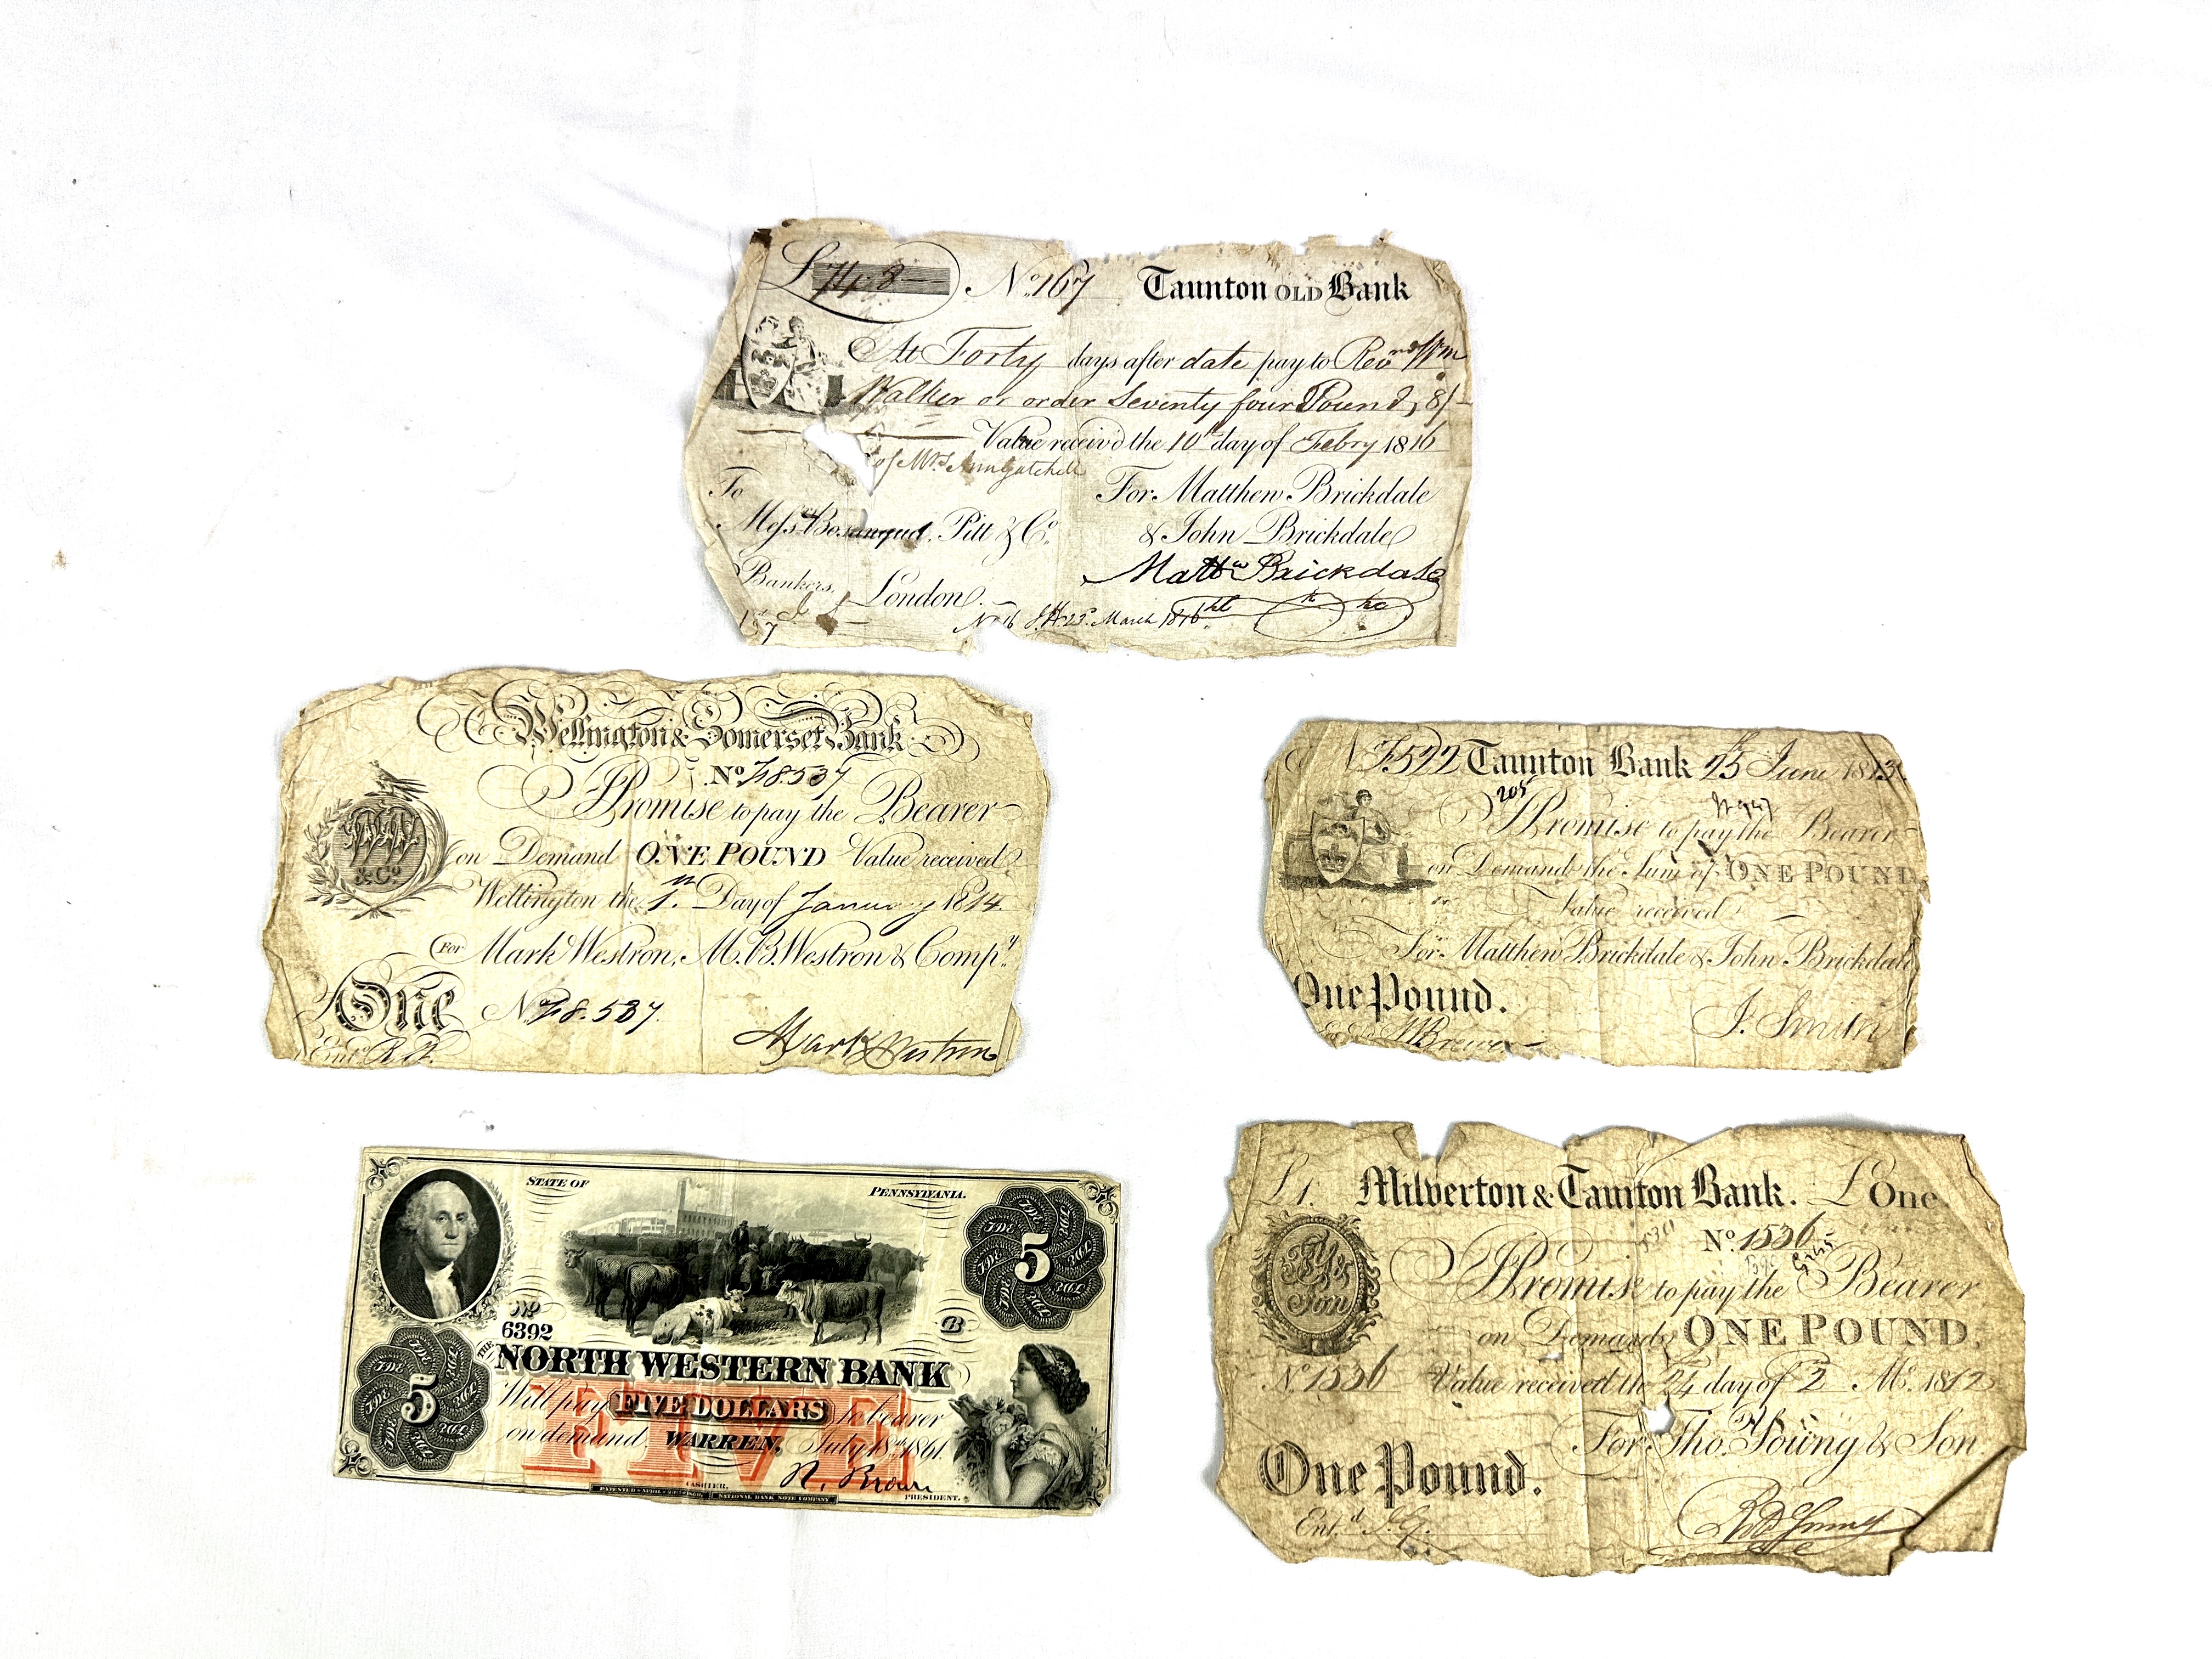 £ 74 „ 8 — No. 167 Taunton OLD Bank
At Forty days after date pay to Revnd Wm
Walker or order Seventy four Pounds, 8/-
Value receiv'd the 10th day of Febry 1816
of Mrs Ann Gatchell
To For Matthew Brickdale
Messrs Bosanquet, Pitt & Co. & John Brickdale
Mattw Brickdale
Bankers, London.
March 1816
Wellington & Somerset Bank
No. 8.537
I Promise to pay the Bearer
on Demand ONE POUND Value received
Wellington the 1st Day of January 1814.
For Mark Westron, M. B. Westron & Compy.
& Co.
£ One No. 8.537
Mark Westron
Entd
Taunton Bank 25 June 1813
205
I Promise to pay the Bearer
on Demand the Sum of ONE POUND
Value received
For Matthew Brickdale & John Brickdale
One Pound.
J. Smith
STATE OF PENNSYLVANIA.
5
No
6392 B
THE NORTH WESTERN BANK
5 FIVE
Will pay FIVE DOLLARS to bearer
on demand, WARREN, July 18th 1861.
R. Brown
CASHIER. PRESIDENT.
NATIONAL BANK NOTE COMPANY
£1. Milverton & Taunton Bank. £One.
No. 1536
TY & Son
I Promise to pay the Bearer
on Demand ONE POUND,
No. 1536 Value received the 24 day of 2 Mo. 1812
For Thos. Young & Son
One Pound.
Entd